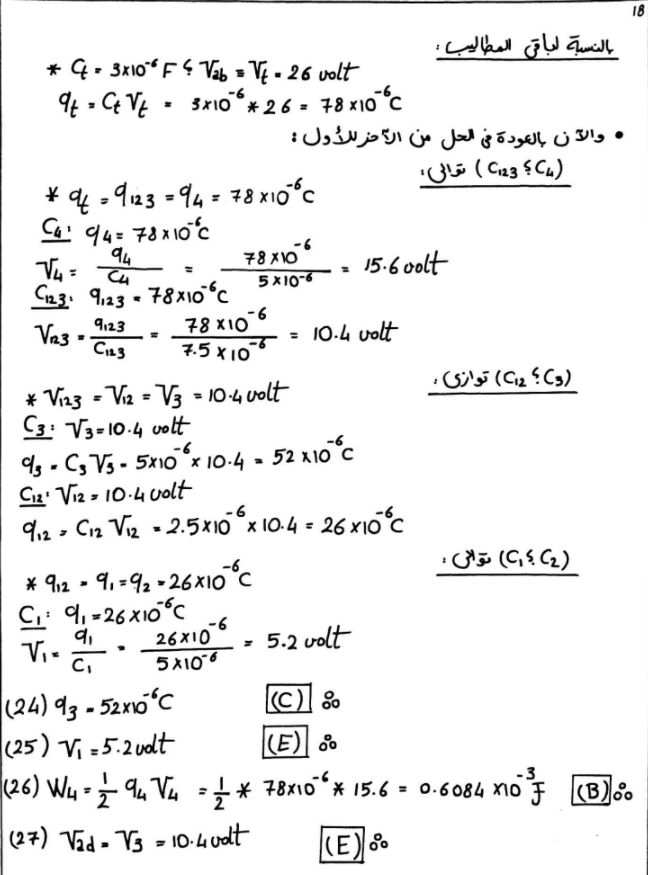 18
بالنسبة لباقي المطاليب:
* Ct = 3x10⁻⁶ F ؟ Vab = Vt = 26 volt
qt = Ct Vt = 3x10⁻⁶ * 26 = 78 x10⁻⁶C
• والآن بالعودة في الحل من الآخر للأول:
(C123 ؟ C4) توالي:
* qt = q123 = q4 = 78 x10⁻⁶C
C4: q4 = 78 x 10⁻⁶C
V4 = q4/C4 = 78 x10⁻⁶/5 x10⁻⁶ = 15.6 volt
C123: q123 = 78x10⁻⁶C
V123 = q123/C123 = 78 x10⁻⁶/7.5 x 10⁻⁶ = 10.4 volt
(C12 ؟ C3) توازي:
* V123 = V12 = V3 = 10.4 volt
C3: V3 = 10.4 volt
q3 = C3 V3 = 5x10⁻⁶ x 10.4 = 52 x10⁻⁶C
C12: V12 = 10.4 volt
q12 = C12 V12 = 2.5x10⁻⁶ x 10.4 = 26 x10⁻⁶C
(C1 ؟ C2) توالي:
* q12 = q1 = q2 = 26x10⁻⁶C
C1: q1 = 26 x10⁻⁶C
V1 = q1/C1 = 26x10⁻⁶/5x10⁻⁶ = 5.2 volt
(24) q3 = 52x10⁻⁶C (C)
(25) V1 = 5.2 volt (E)
(26) W4 = 1/2 q4 V4 = 1/2 * 78x10⁻⁶ * 15.6 = 0.6084 x10⁻³ J (B)
(27) Vad = V3 = 10.4 volt (E)